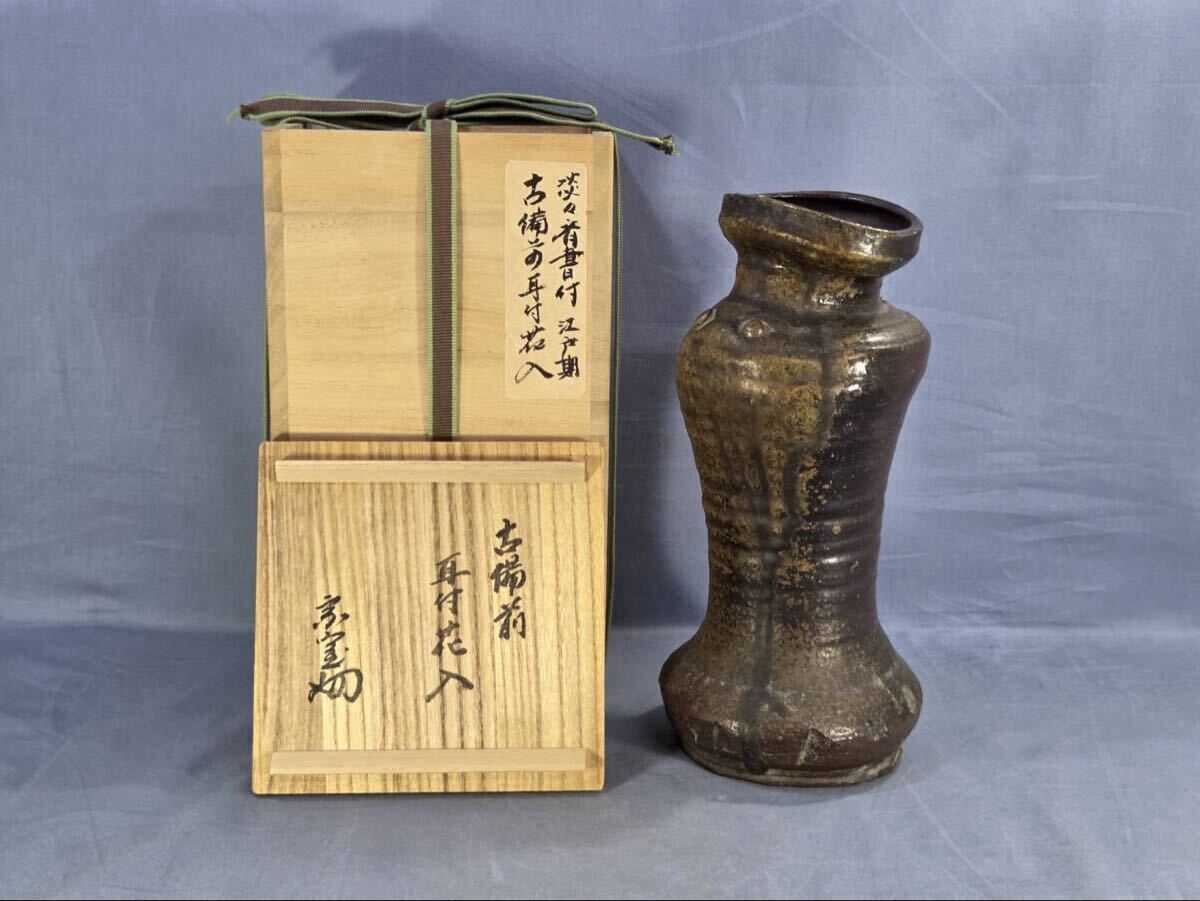 淡々斎書付 江戸期
古備前耳付花入
古備前
耳付花入